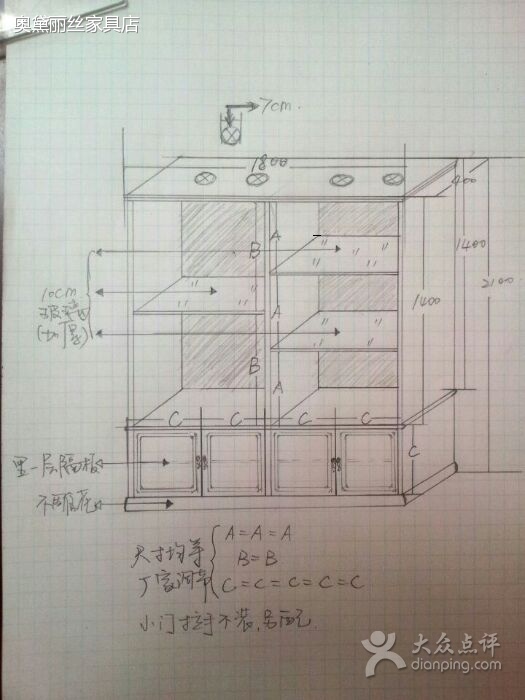 奥黛丽丝家具店
7cm.
1800
400
A
B
1400
1400
2100
10cm
玻璃
(加厚)
A
B
A
C C C C
C
里一层隔板
不要雕花
尺寸均等
厂家调节
A=A=A
B=B
C=C=C=C=C
小门拉手不装,另配.
大众点评
dianping.com